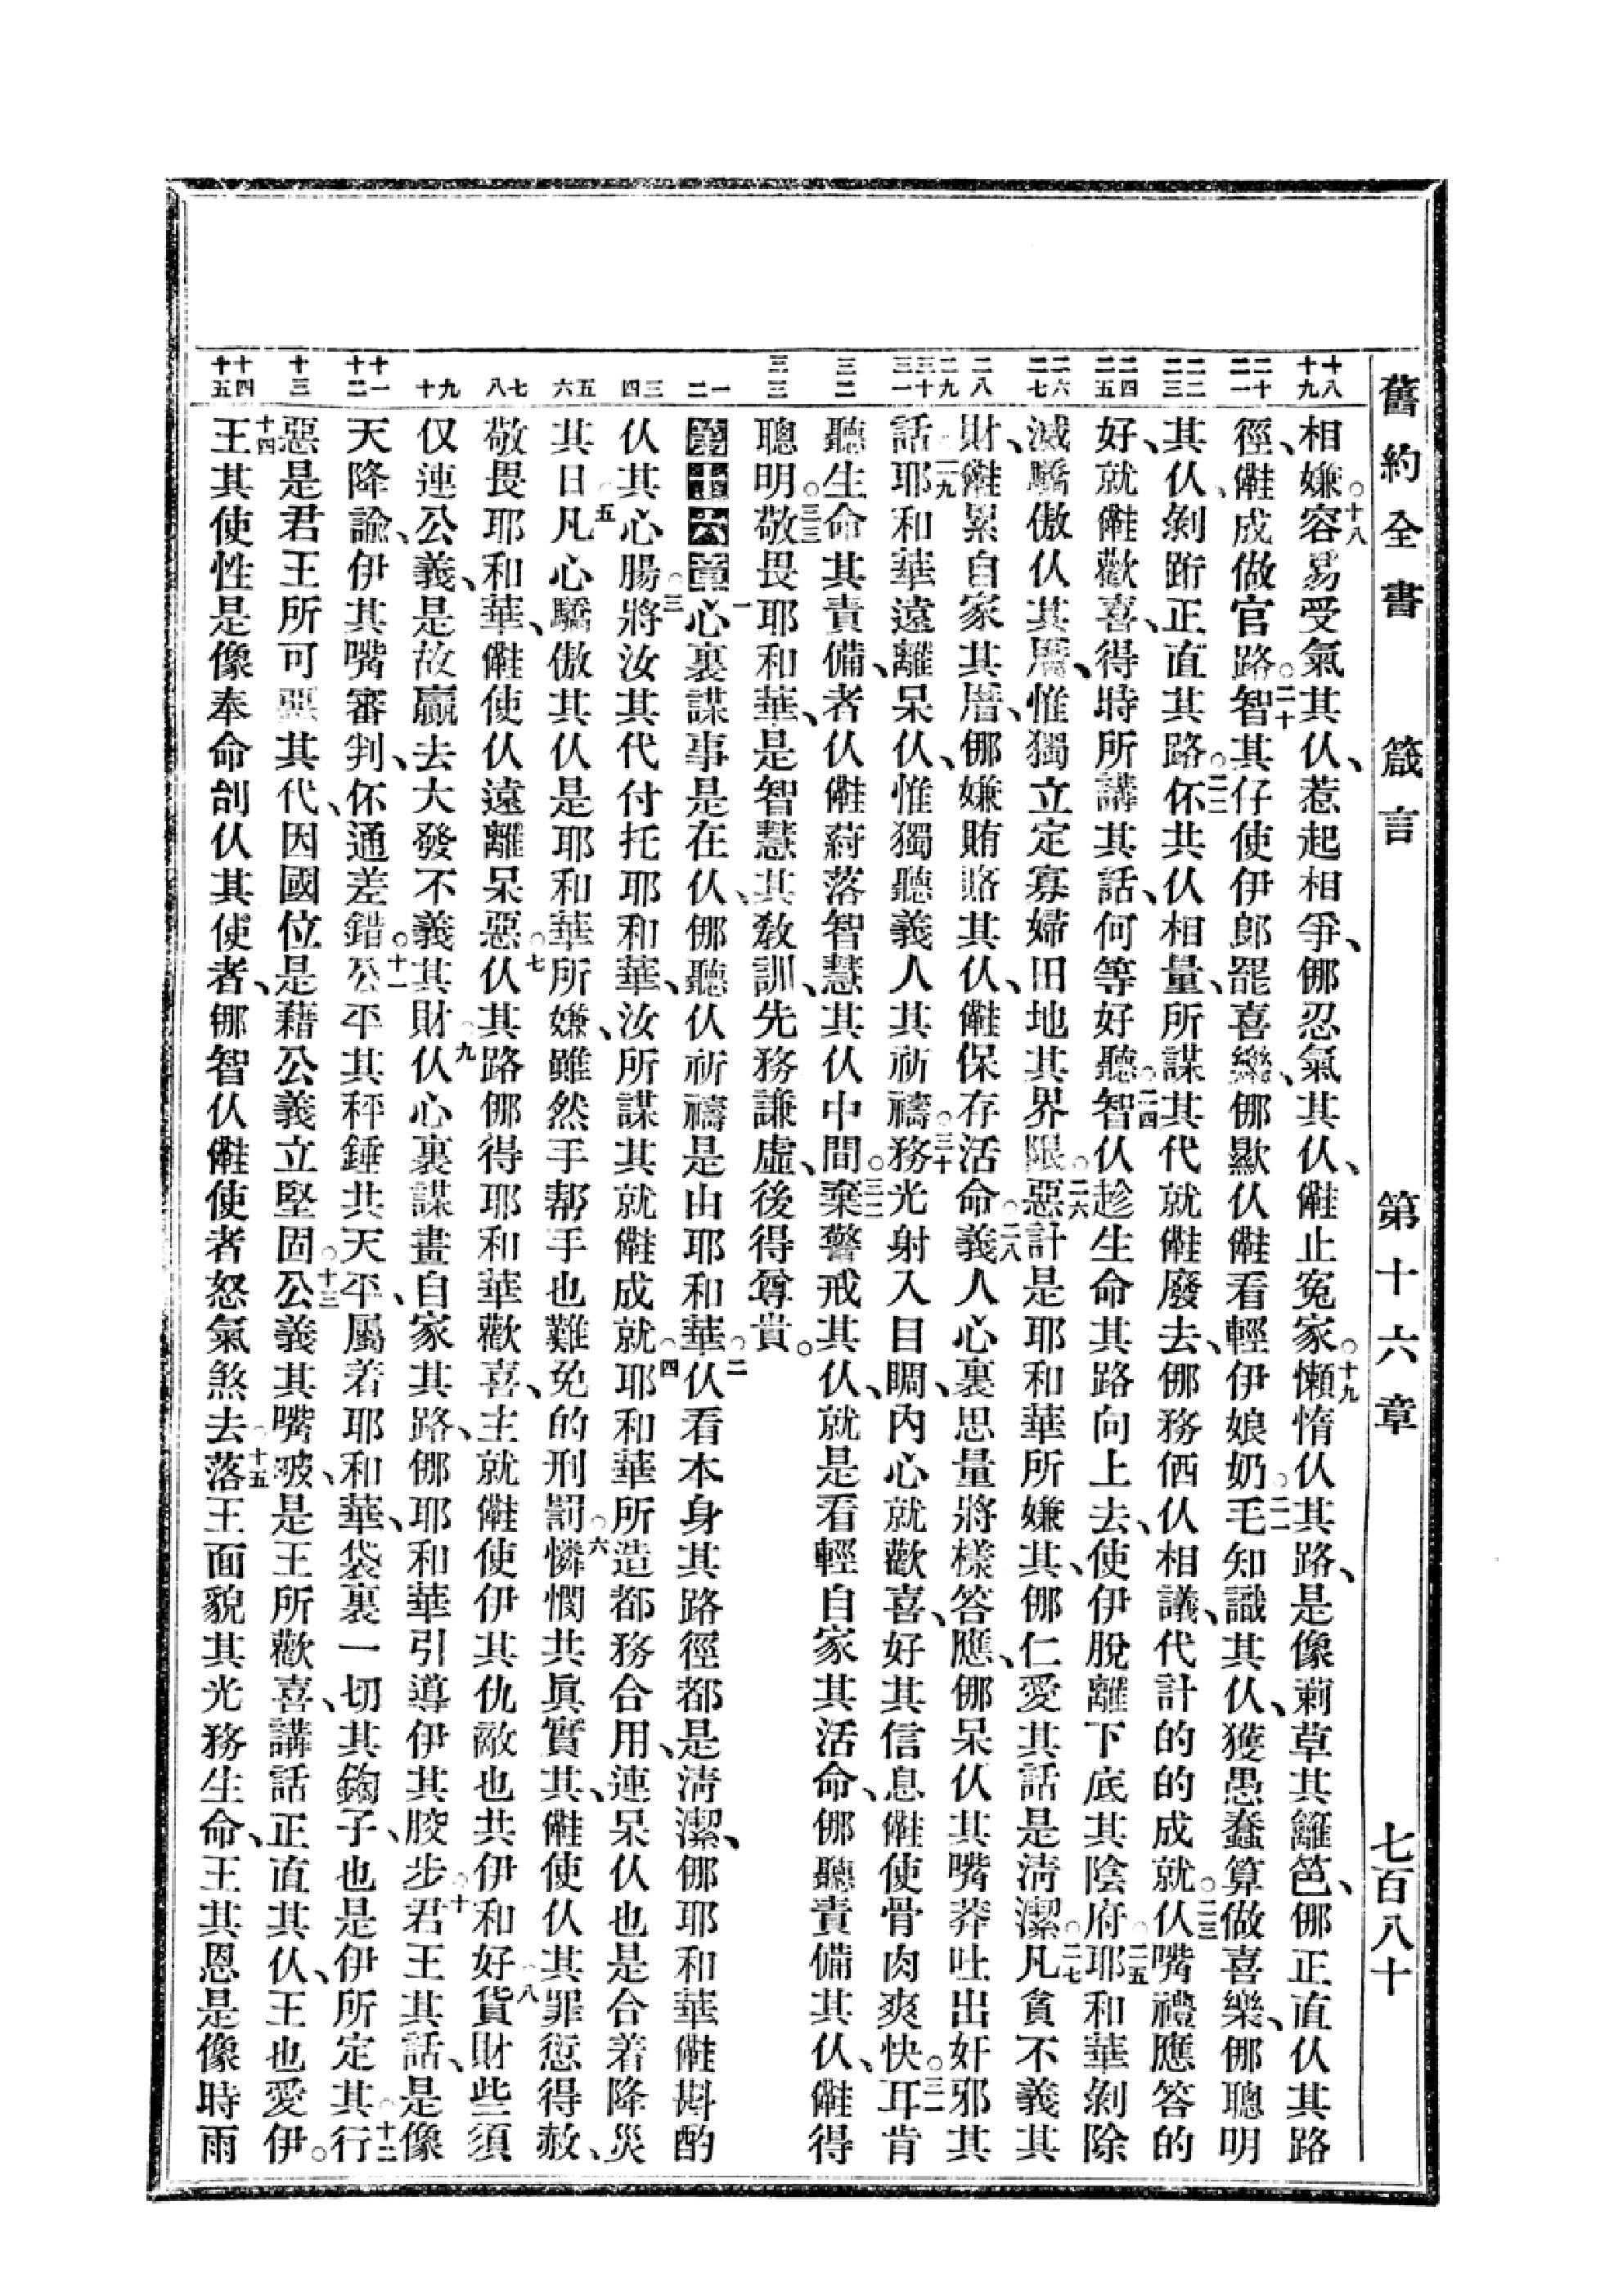 舊約全書 箴言 第十六章 七百八十
十八 十九
二十 二一
二二 二三
二四 二五
二六 二七
二八 二九
三十 三一
三二
三三
一 二
三 四
五 六
七 八
九 十
十一 十二
十三
十四 十五
相嫌。十八容易受氣其仈、惹起相爭、㑚忍氣其仈、𠆧止冤家。十九懶惰仈其路、是像莿草其籬笆、㑚正直仈其路
徑、𠆧成做官路。二十智其仔使伊郎罷喜樂、㑚歉仈𠆧看輕伊娘奶。二一毛知識其仈、獲愚蠢算做喜樂、㑚聰明
其仈、剝跡正直其路。二二伓共仈相量、所謀其代就𠆧廢去、㑚務価仈相議、代計的的成就。二三仈嘴禮應答的
好、就𠆧歡喜、得時所講其話、何等好聽。二四智仈趁生命其路向上去、使伊脫離下底其陰府。二五耶和華剝除
滅驕傲仈其厝、惟獨立定寡婦田地其界限。二六惡計是耶和華所嫌其、㑚仁愛其話是淸潔。二七凡貪不義其
財、𠆧累自家其厝、㑚嫌賄賂其仈、𠆧保存活命。二八義人心裏思量將樣答應、㑚呆仈其嘴莽吐出奸邪其
話。二九耶和華遠離呆仈、惟獨聽義人其祈禱。三十務光射入目睭、內心就歡喜、好其信息𠆧使骨肉爽快。三一耳肯
聽生命其責備、者仈𠆧蒔落智慧其仈中間。三二棄警戒其仈、就是看輕自家其活命、㑚聽責備其仈、𠆧得
聰明。三三敬畏耶和華、是智慧其敎訓、先務謙虛、後得尊貴。
第十六章 一心裏謀事是在仈、㑚聽仈祈禱是由耶和華。二仈看本身其路徑都是淸潔、㑚耶和華𠆧斟酌
仈其心腸。三將汝其代付托耶和華、汝所謀其就𠆧成就。四耶和華所造都務合用、連呆仈也是合着降災
其日。五凡心驕傲其仈是耶和華所嫌、雖然手帮手也難免的刑罰。六憐憫共眞實其、𠆧使仈其罪愆得赦、
敬畏耶和華、𠆧使仈遠離呆惡。七仈其路㑚得耶和華歡喜、主就𠆧使伊其仇敵也共伊和好。八貨財些須
仅連公義、是故贏去大發不義其財。九仈心裏謀畫自家其路、㑚耶和華引導伊其骹步。十君王其話、是像
天降諭、伊其嘴審判、伓通差錯。十一公平其秤錘共天平、屬着耶和華、袋裏一切其鍧子、也是伊所定其。十二行
惡是君王所可惡其代、因國位是藉公義立堅固。十三公義其嘴㖕、是王所歡喜、講話正直其仈、王也愛伊。
十四王其使性是像奉命刣仈其使者、㑚智仈𠆧使者怒氣煞去落。十五王面貌其光務生命、王其恩是像時雨